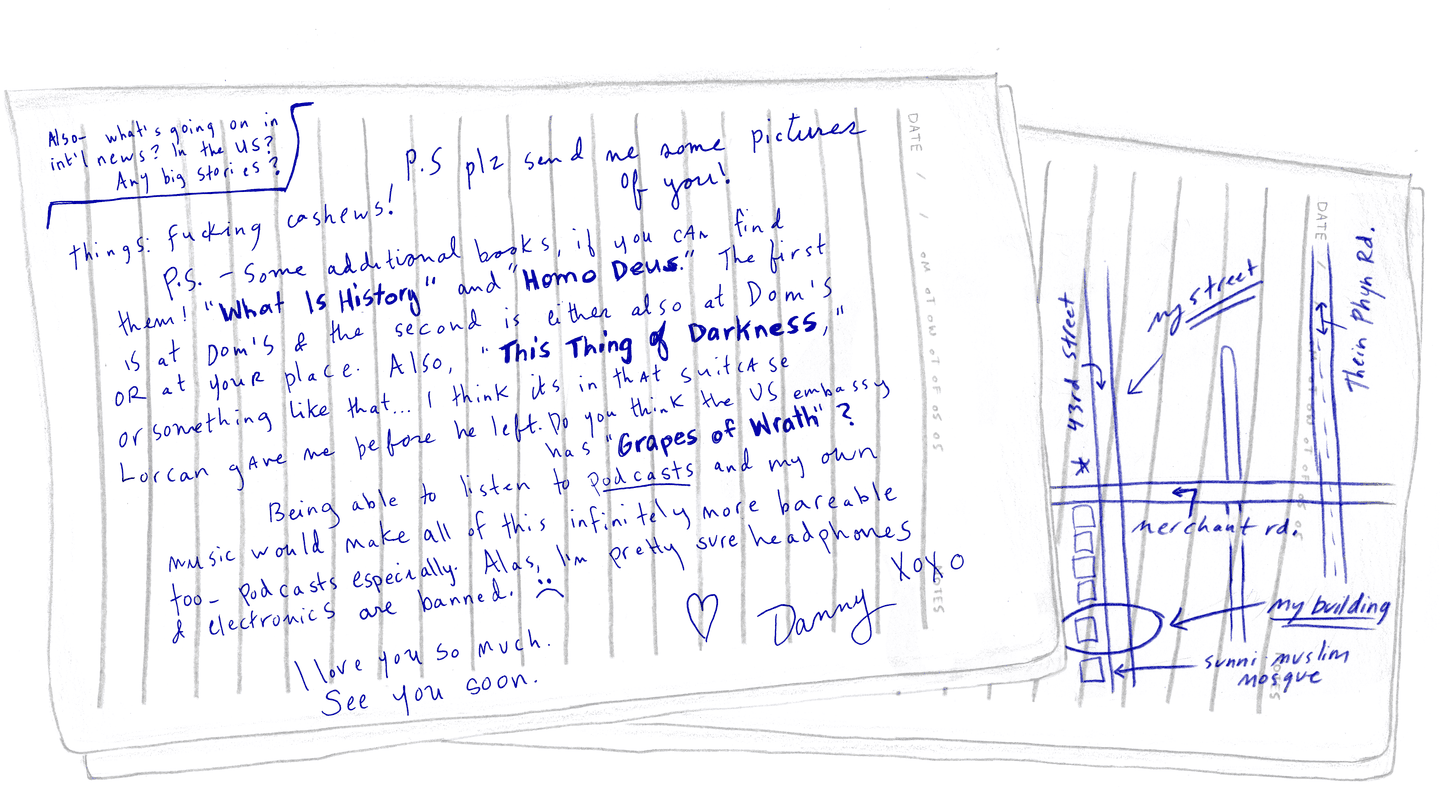 Also- what's going on in
int'l news? In the US?
Any big stories?
P.S plz send me some pictures
of you!
things: fucking cashews!
P.S. - Some additional books, if you can find
them! "What Is History" and "Homo Deus." The first
is at Dom's & the second is either also at Dom's
OR at your place. Also, "This Thing of Darkness,"
or something like that... I think its in that suitcase
Lorcan gave me before he left. Do you think the US embassy
has "Grapes of Wrath"?
Being able to listen to Podcasts and my own
music would make all of this infinitely more bareable
too- Podcasts especially. Alas, I'm pretty sure headphones
& electronics are banned. ☹
XOXO
♡ Danny
I love you so much.
See you soon.
DATE / /
NOTES
DATE /
Thein Phyn Rd.
my street
* 43rd street
merchant rd.
my building
sunni muslim
mosque